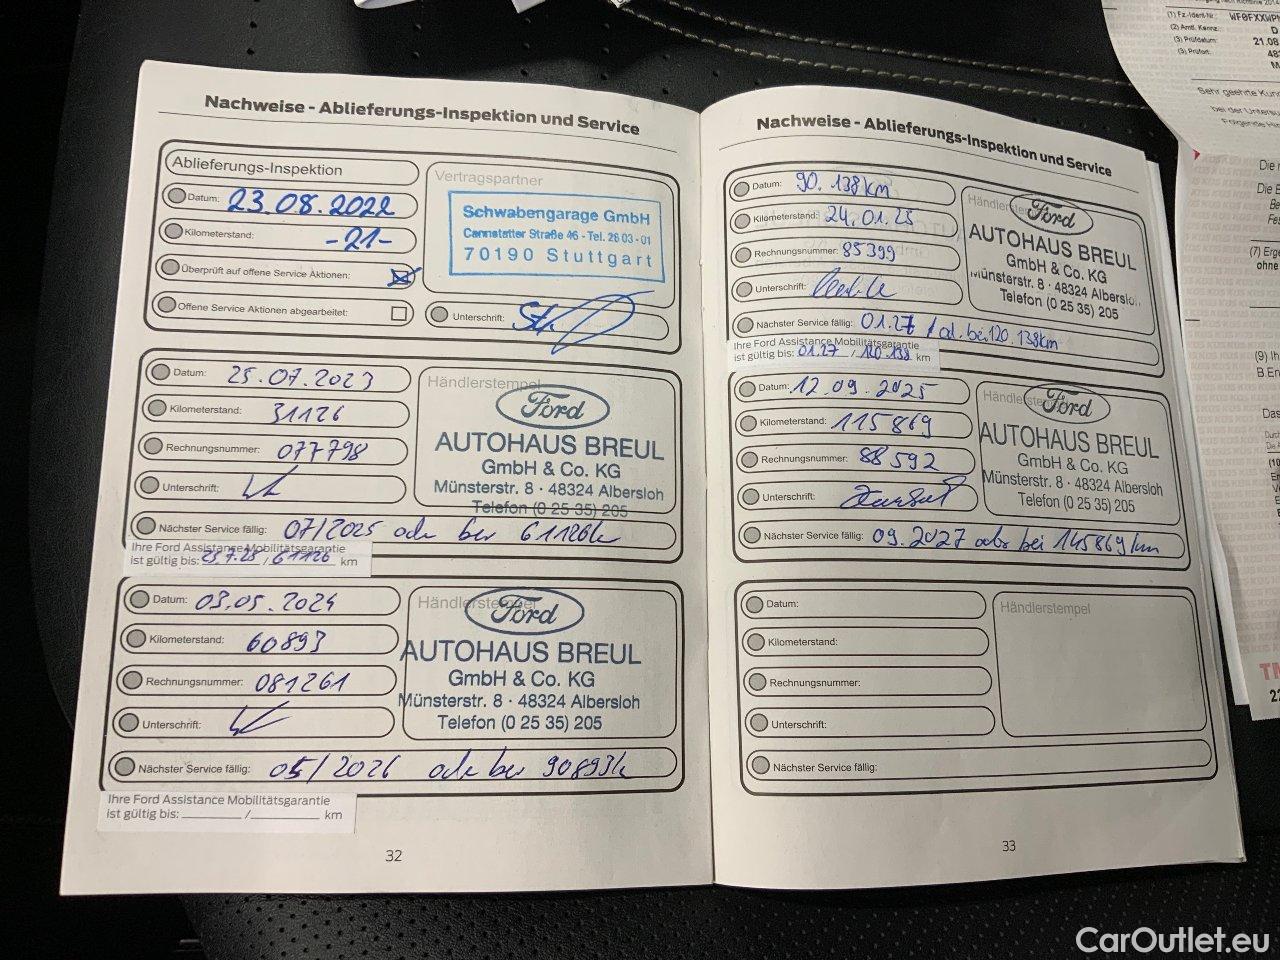 Nachweise - Ablieferungs-Inspektion und Service
Ablieferungs-Inspektion
Datum: 23.08.2022
Kilometerstand: -21-
Überprüft auf offene Service Aktionen:
Offene Service Aktionen abgearbeitet:
Vertragspartner
Schwabengarage GmbH
Cannstatter Straße 46 - Tel. 26 03 - 01
70190 Stuttgart
Unterschrift:
Datum: 25.07.2023
Kilometerstand: 31126
Rechnungsnummer: 077798
Unterschrift:
Händlerstempel
Ford
AUTOHAUS BREUL
GmbH & Co. KG
Münsterstr. 8 · 48324 Albersloh
Telefon (0 25 35) 205
Nächster Service fällig: 07/2025 oder bei 61126k
Ihre Ford Assistance Mobilitätsgarantie
ist gültig bis: 25.7.25 / 61126 km
Datum: 03.05.2024
Kilometerstand: 60893
Rechnungsnummer: 081261
Unterschrift:
Händlerstempel
Ford
AUTOHAUS BREUL
GmbH & Co. KG
Münsterstr. 8 · 48324 Albersloh
Telefon (0 25 35) 205
Nächster Service fällig: 05/2026 oder bei 90893k
Ihre Ford Assistance Mobilitätsgarantie
ist gültig bis: ________ /__________ km
32
Nachweise - Ablieferungs-Inspektion und Service
Datum: 90.138km
Kilometerstand: 24.01.25
Rechnungsnummer: 85399
Unterschrift:
Ford
AUTOHAUS BREUL
GmbH & Co. KG
Münsterstr. 8 · 48324 Albersloh
Telefon (0 25 35) 205
Nächster Service fällig: 01.27 / od. bei 120.138km
Ihre Ford Assistance Mobilitätsgarantie
ist gültig bis: 01.27 / 120.138 km
Datum: 12.09.2025
Kilometerstand: 115869
Rechnungsnummer: 88592
Unterschrift:
Ford
AUTOHAUS BREUL
GmbH & Co. KG
Münsterstr. 8 · 48324 Albersloh
Telefon (0 25 35) 205
Nächster Service fällig: 09.2027 oder bei 145869km
Datum:
Kilometerstand:
Rechnungsnummer:
Unterschrift:
Händlerstempel
Nächster Service fällig:
33
(1) Fz.-Ident-Nr.: WF0FXXWP
(2) Amtl. Kennz.
(3) Prüfdatum: 21.08
(3) Prüfort:
Sehr geehrte
bei der
Folgende
CarOutlet.eu